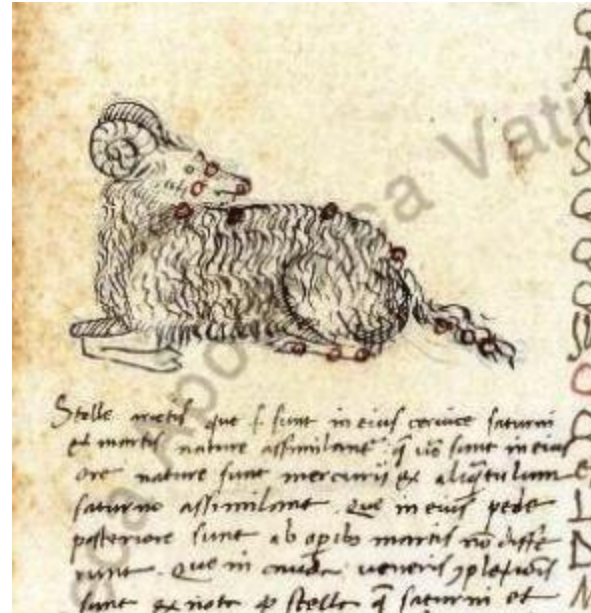 Stelle arietis que s. sunt in eius cervice saturni
et martis nature assimilant. q vo sunt in eius
ore nature sunt mercurii et aliqtulum
saturno assimilant. que in eius pede
posteriore sunt ab opibs martis no diffe
runt. que in cauda veneris
sunt et nota stelle saturni et